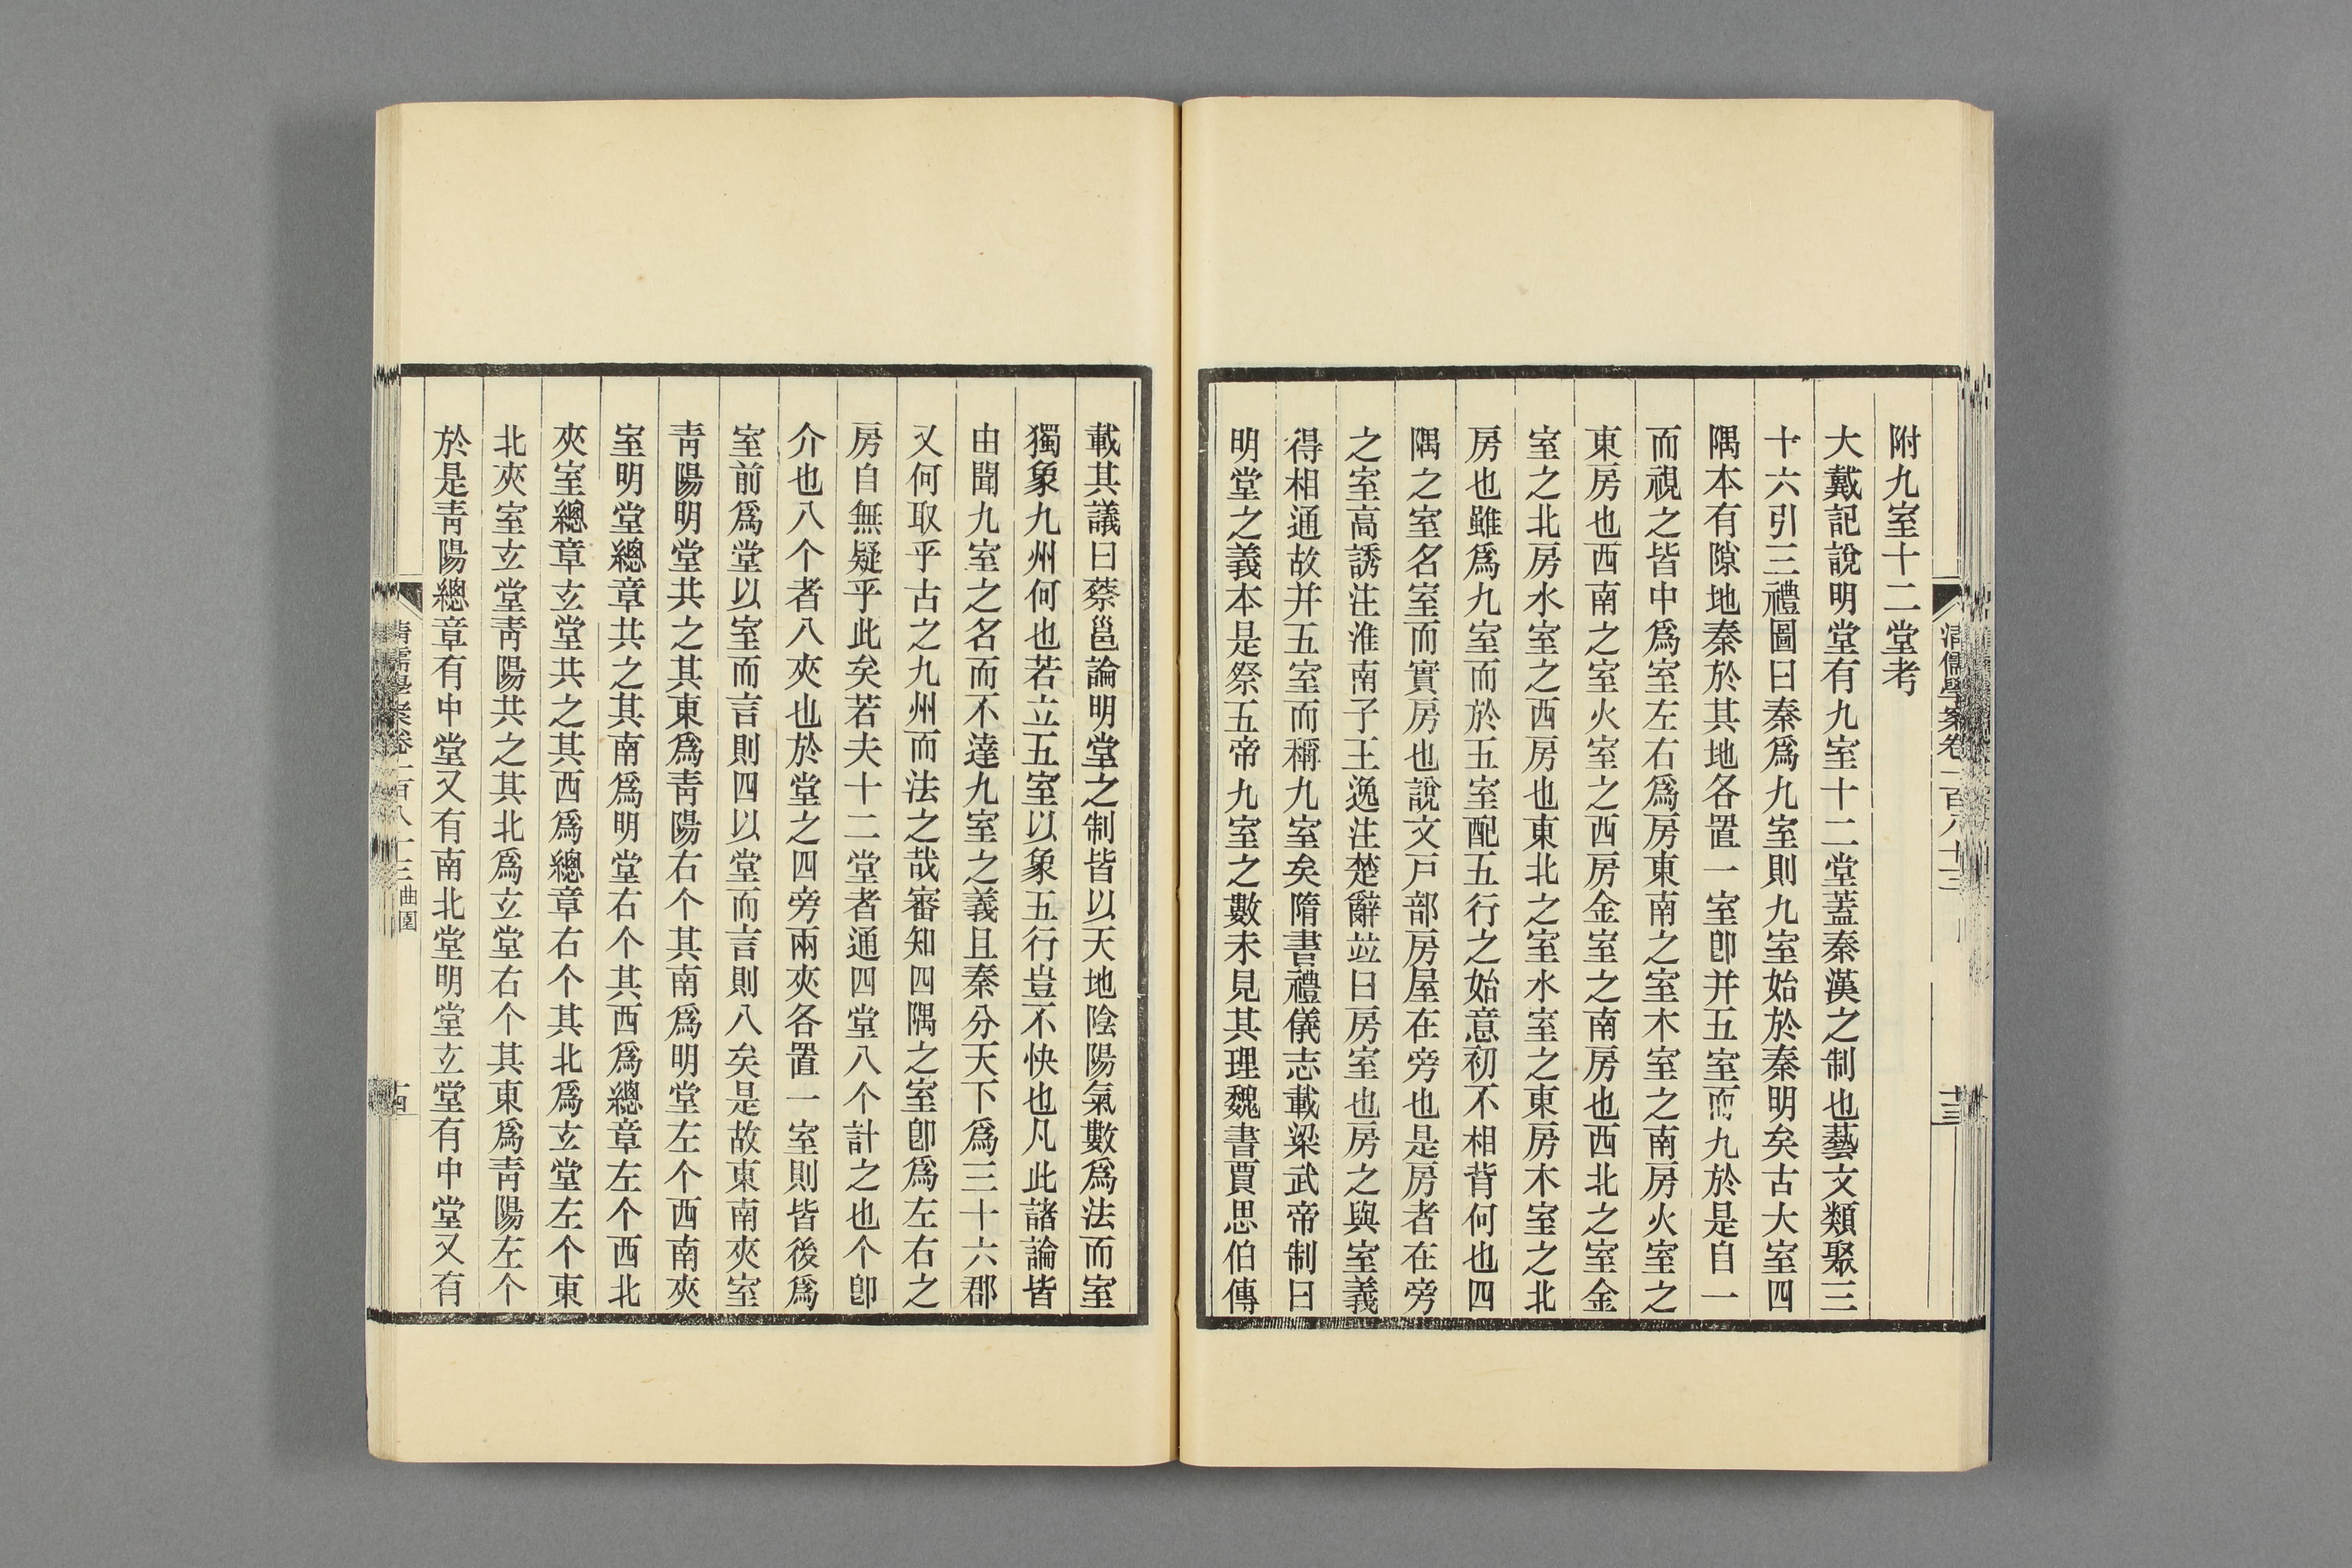 附九室十二堂考
大戴記說明堂有九室十二堂蓋秦漢之制也藝文類聚三
十六引三禮圖曰秦爲九室則九室始於秦明矣古大室四
隅本有隙地秦於其地各置一室卽并五室而九於是自一
而視之皆中爲室左右爲房東南之室木室之南房火室之
東房也西南之室火室之西房金室之南房也西北之室金
室之北房水室之西房也東北之室水室之東房木室之北
房也雖爲九室而於五室配五行之始意初不相背何也四
隅之室名室而實房也說文戶部房屋在旁也是房者在旁
之室高誘注淮南子王逸注楚辭竝曰房室也房之與室義
得相通故并五室而稱九室矣隋書禮儀志載梁武帝制曰
明堂之義本是祭五帝九室之數未見其理魏書賈思伯傳
清儒學案卷一百八十三
十三
載其議曰蔡邕論明堂之制皆以天地陰陽氣數爲法而室
獨象九州何也若立五室以象五行豈不快也凡此諸論皆
由聞九室之名而不達九室之義且秦分天下爲三十六郡
又何取乎古之九州而法之哉審知四隅之室卽爲左右之
房自無疑乎此矣若夫十二堂者通四堂八个計之也个卽
介也八个者八夾也於堂之四旁兩夾各置一室則皆後爲
室前爲堂以室而言則四以堂而言則八矣是故東南夾室
靑陽明堂共之其東爲靑陽右个其南爲明堂左个西南夾
室明堂總章共之其南爲明堂右个其西爲總章左个西北
夾室總章玄堂共之其西爲總章右个其北爲玄堂左个東
北夾室玄堂靑陽共之其北爲玄堂右个其東爲靑陽左个
於是靑陽總章有中堂又有南北堂明堂玄堂有中堂又有
清儒學案卷一百八十三 曲園
十四